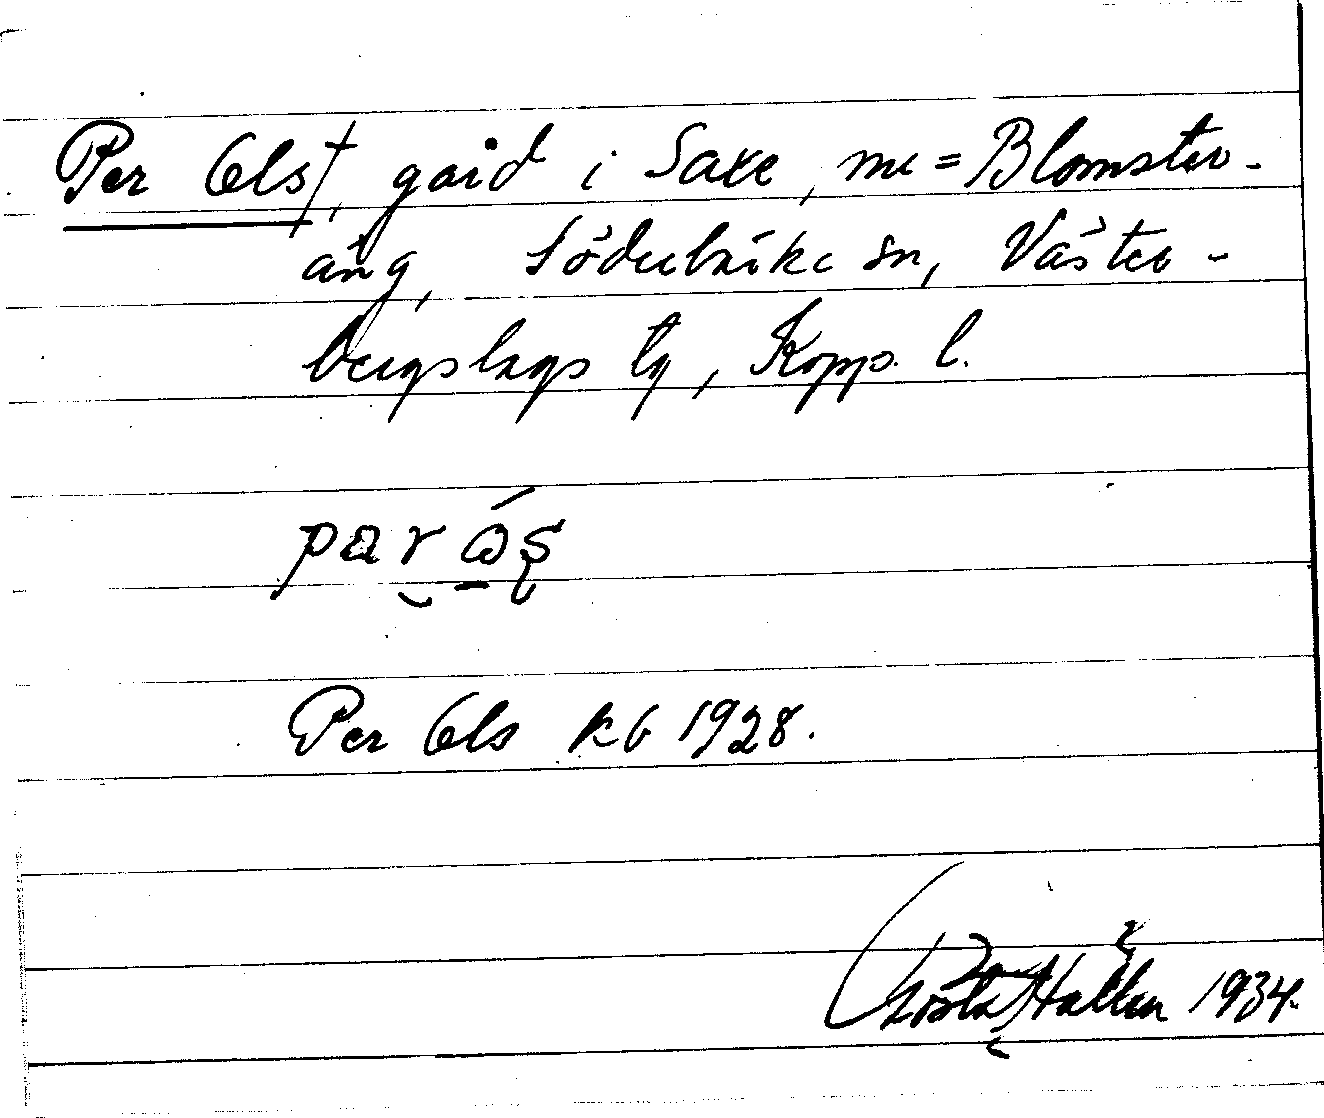 Per Ols†, gård i Saxe, me = Blomster-
äng, Söderbärke sn, Väster-
bergslags tg, Kopps. l.
Per Ols kb 1928.
Gösta Hallén 1934.